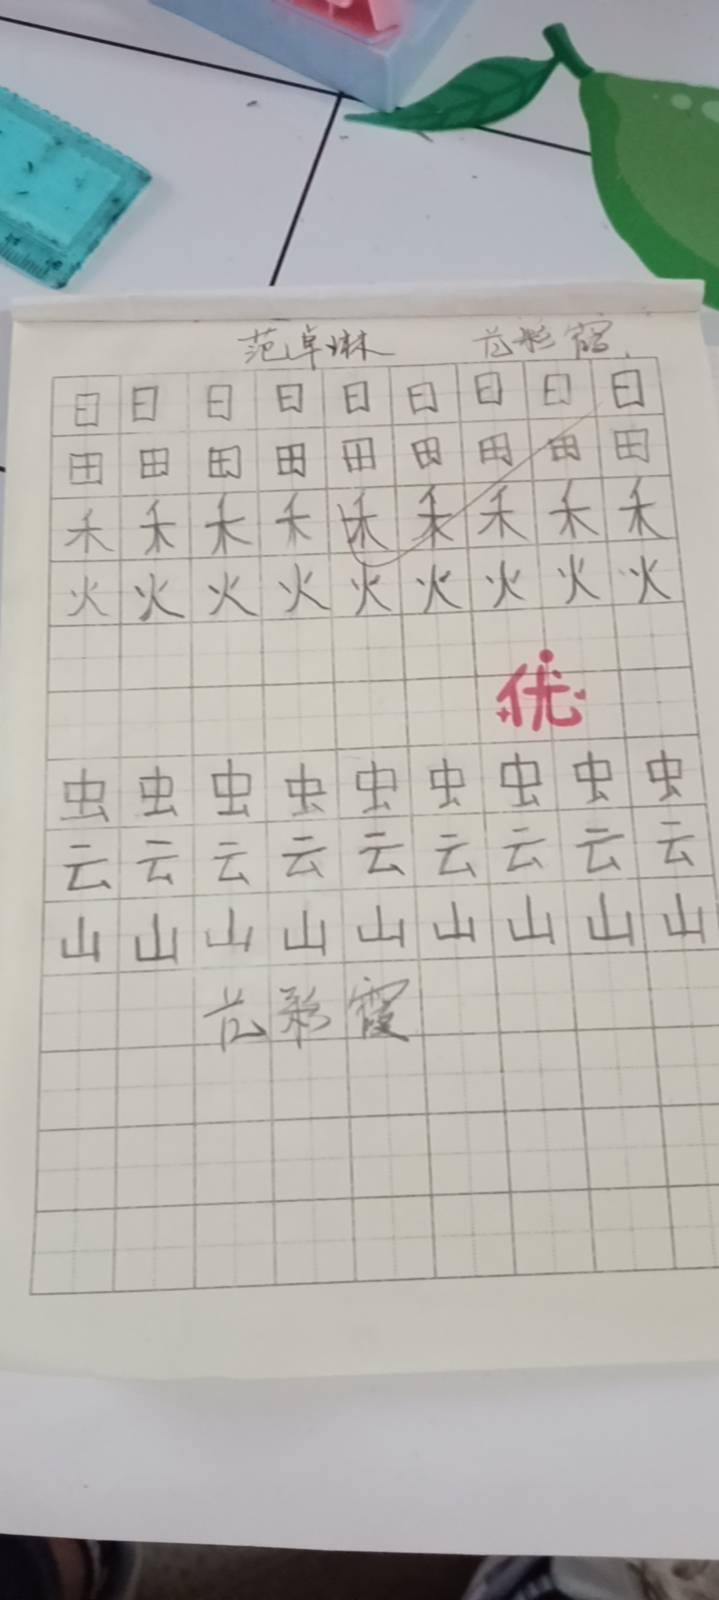 范卓琳 范彩霞
日日日日日日日日日
田田田田田田田田田
禾禾禾禾禾禾禾禾禾
火火火火火火火火火
优
虫虫虫虫虫虫虫虫虫
云云云云云云云云云
山山山山山山山山山
范彩霞